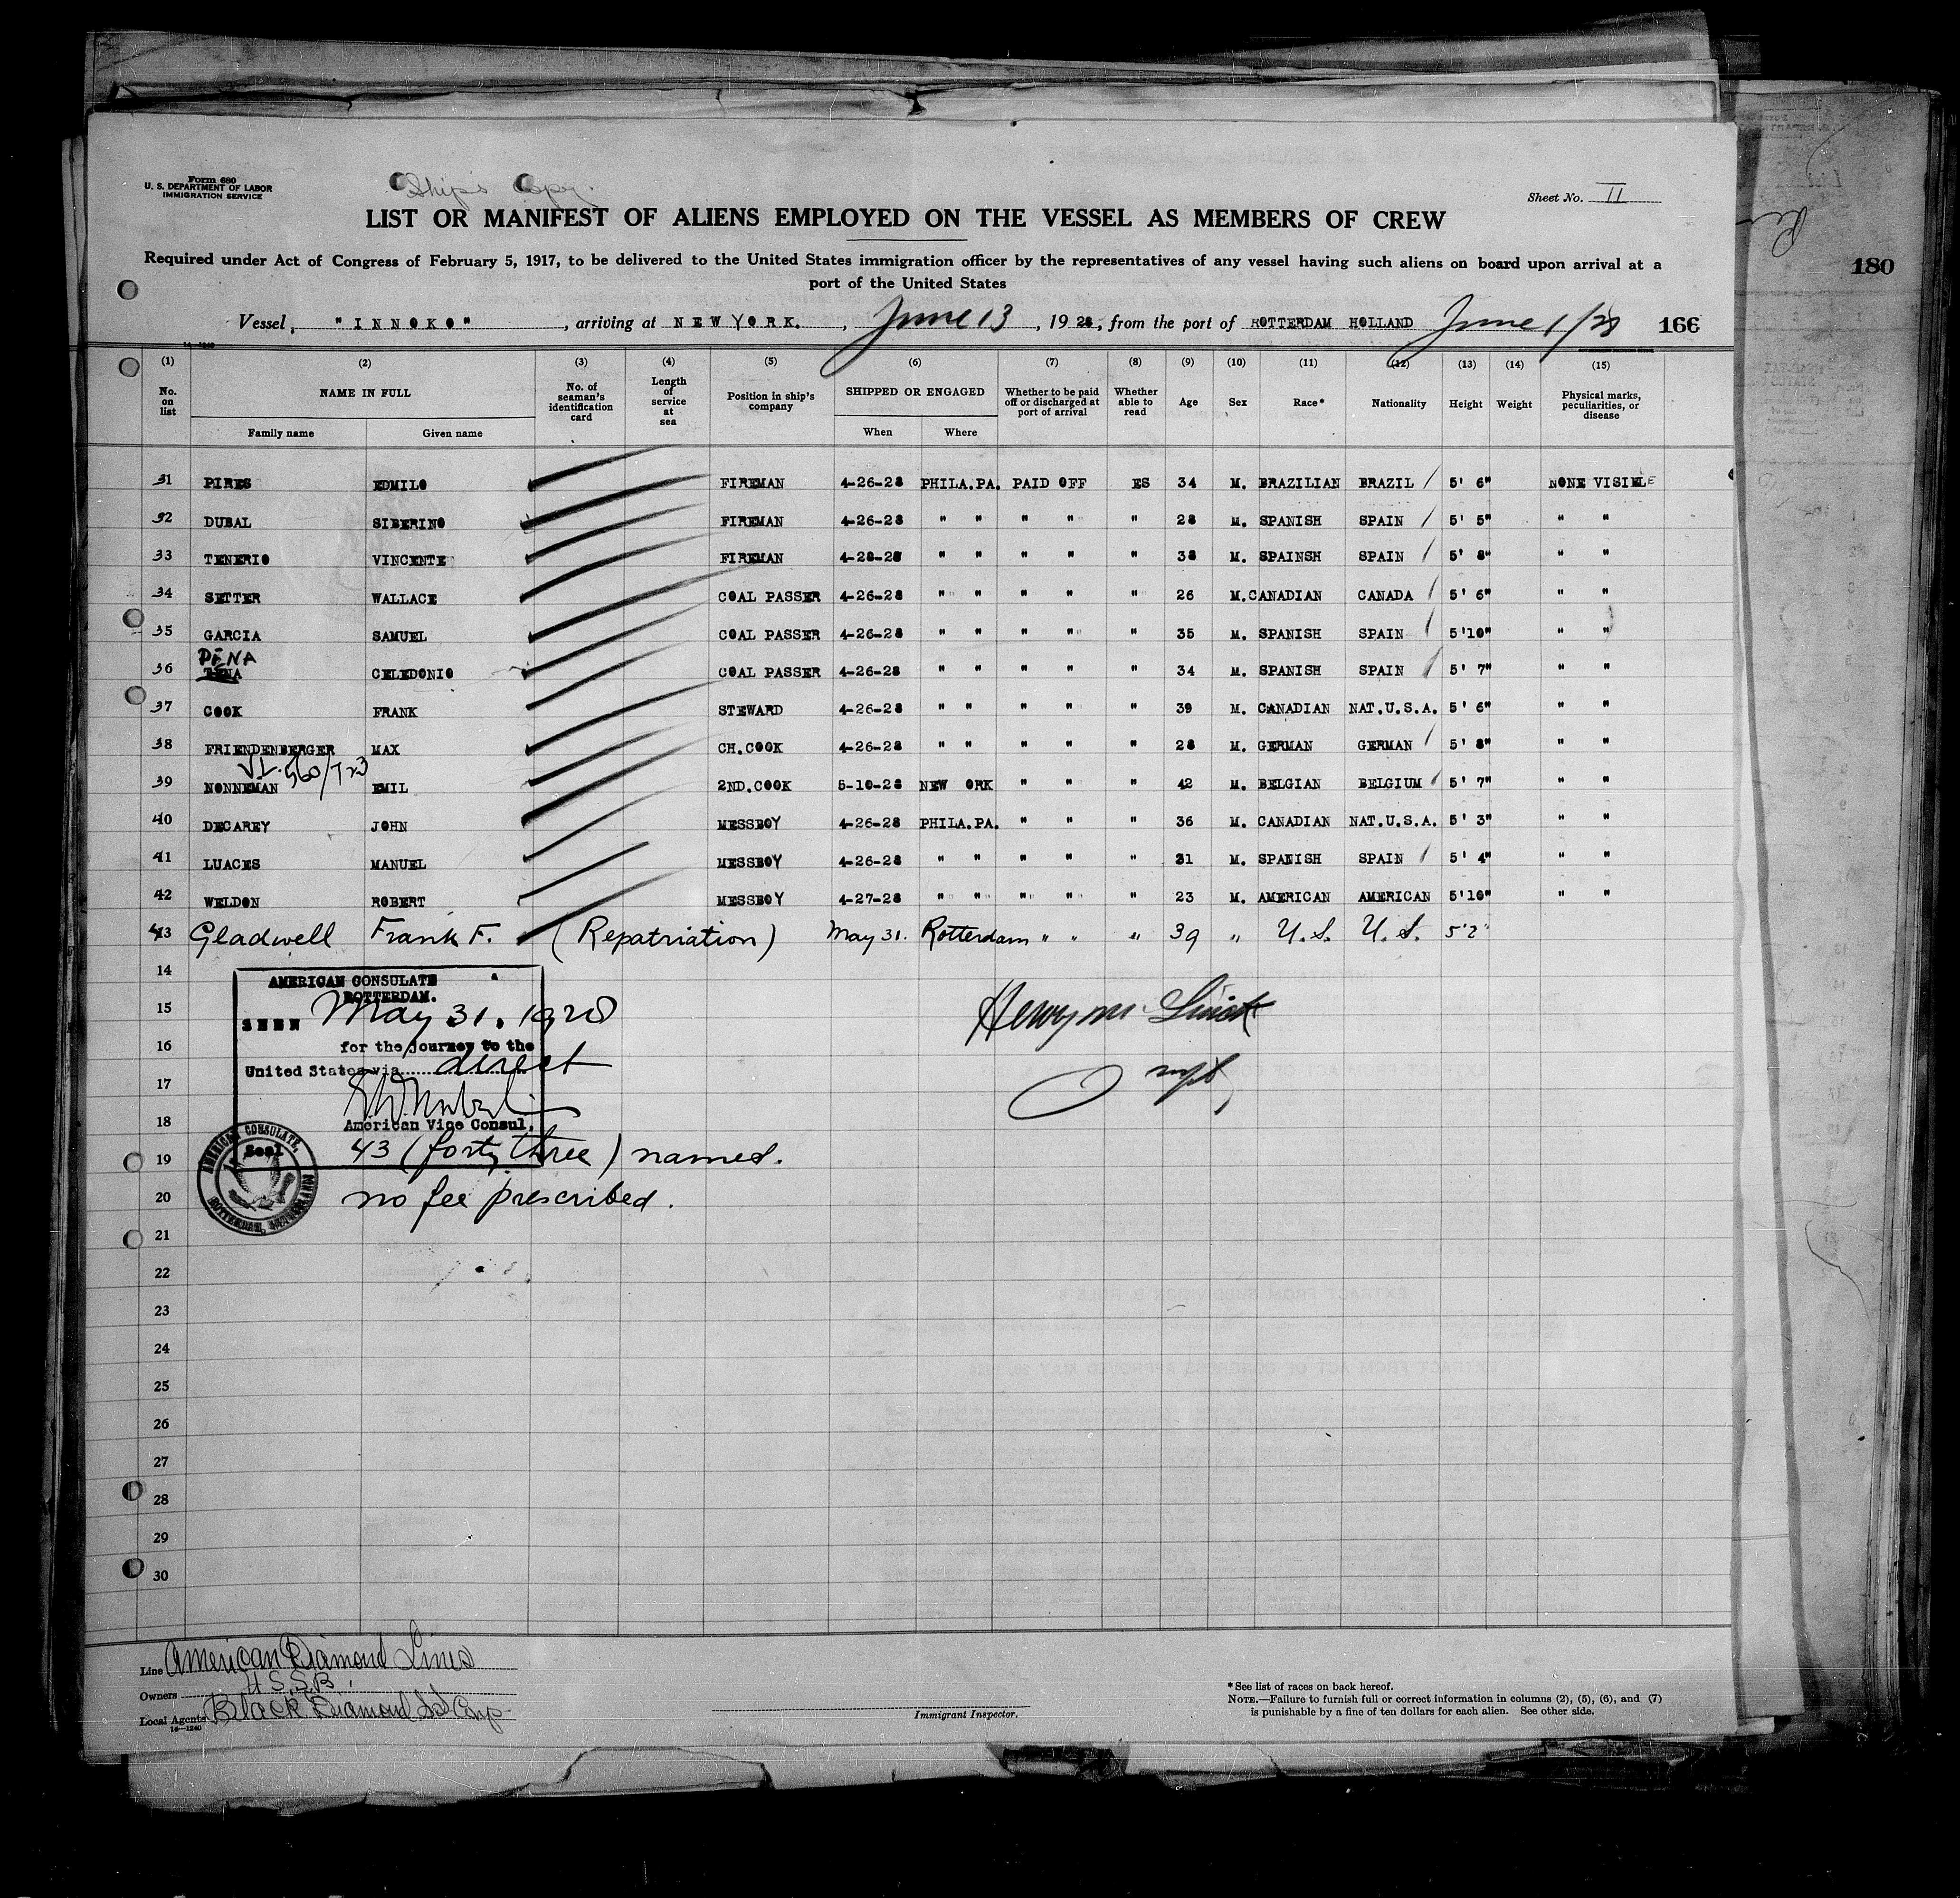 Form 680
U. S. DEPARTMENT OF LABOR
IMMIGRATION SERVICE
Ship's Copy.
Sheet No. II
LIST OR MANIFEST OF ALIENS EMPLOYED ON THE VESSEL AS MEMBERS OF CREW
Required under Act of Congress of February 5, 1917, to be delivered to the United States immigration officer by the representatives of any vessel having such aliens on board upon arrival at a
port of the United States
Vessel, "INNOKO", arriving at NEW YORK., June 13, 1928, from the port of ROTTERDAM HOLLAND June 1/28 166
180
(1) (2) (3) (4) (5) (6) (7) (8) (9) (10) (11) (12) (13) (14) (15)
No. on list NAME IN FULL Family name Given name No. of seaman's identification card Length of service at sea Position in ship's company SHIPPED OR ENGAGED When Where Whether to be paid off or discharged at port of arrival Whether able to read Age Sex Race* Nationality Height Weight Physical marks, peculiarities, or disease
31 PIRES EDMILO FIREMAN 4-26-28 PHILA.PA. PAID OFF ES 34 M. BRAZILIAN BRAZIL / 5' 6" NONE VISIBLE
32 DUBAL SIBERINO FIREMAN 4-26-28 " " " " " 28 M. SPANISH SPAIN / 5' 5" " "
33 TENERIO VINCENTE FIREMAN 4-28-28 " " " " " 38 M. SPAINSH SPAIN / 5' 8" " "
34 SETTER WALLACE COAL PASSER 4-26-28 " " " " " 26 M. CANADIAN CANADA / 5' 6" " "
35 GARCIA SAMUEL COAL PASSER 4-26-28 " " " " " 35 M. SPANISH SPAIN / 5'10" " "
PENA
36 TENA CELEDONIO COAL PASSER 4-26-28 " " " " " 34 M. SPANISH SPAIN / 5' 7" " "
37 COOK FRANK STEWARD 4-26-28 " " " " " 39 M. CANADIAN NAT.U.S.A. 5' 6" " "
38 FRIENDENBERGER MAX CH.COOK 4-26-28 " " " " " 28 M. GERMAN GERMAN / 5' 8" " "
560/723
39 NONNEMAN EMIL 2ND.COOK 5-10-28 NEW ORK " " " 42 M. BELGIAN BELGIUM / 5' 7" " "
40 DECAREY JOHN MESSBOY 4-26-28 PHILA.PA. " " " 36 M. CANADIAN NAT.U.S.A. 5' 3" " "
41 LUACES MANUEL MESSBOY 4-26-28 " " " " " 31 M. SPANISH SPAIN / 5' 4" " "
42 WELDON ROBERT MESSBOY 4-27-28 " " " " " 23 M. AMERICAN AMERICAN 5'10" " "
43 Gladwell Frank F. (Repatriation) May 31. Rotterdam " " " 39 " U.S. U.S. 5'2"
14
AMERICAN CONSULATE
ROTTERDAM.
15
SEEN May 31, 1928
16
for the journey to the
United States via direct
17
18
American Vice Consul.
Seal
AMERICAN CONSULATE, ROTTERDAM, NETHERLANDS
19 43 (forty three) names.
20 no fee prescribed.
21
22
23
24
25
26
27
28
29
30
Line American Diamond Lines
Owners U.S.S.B.
Local Agents Black Diamond SS Corp
14—1240
Immigrant Inspector.
* See list of races on back hereof.
NOTE.—Failure to furnish full or correct information in columns (2), (5), (6), and (7)
is punishable by a fine of ten dollars for each alien. See other side.